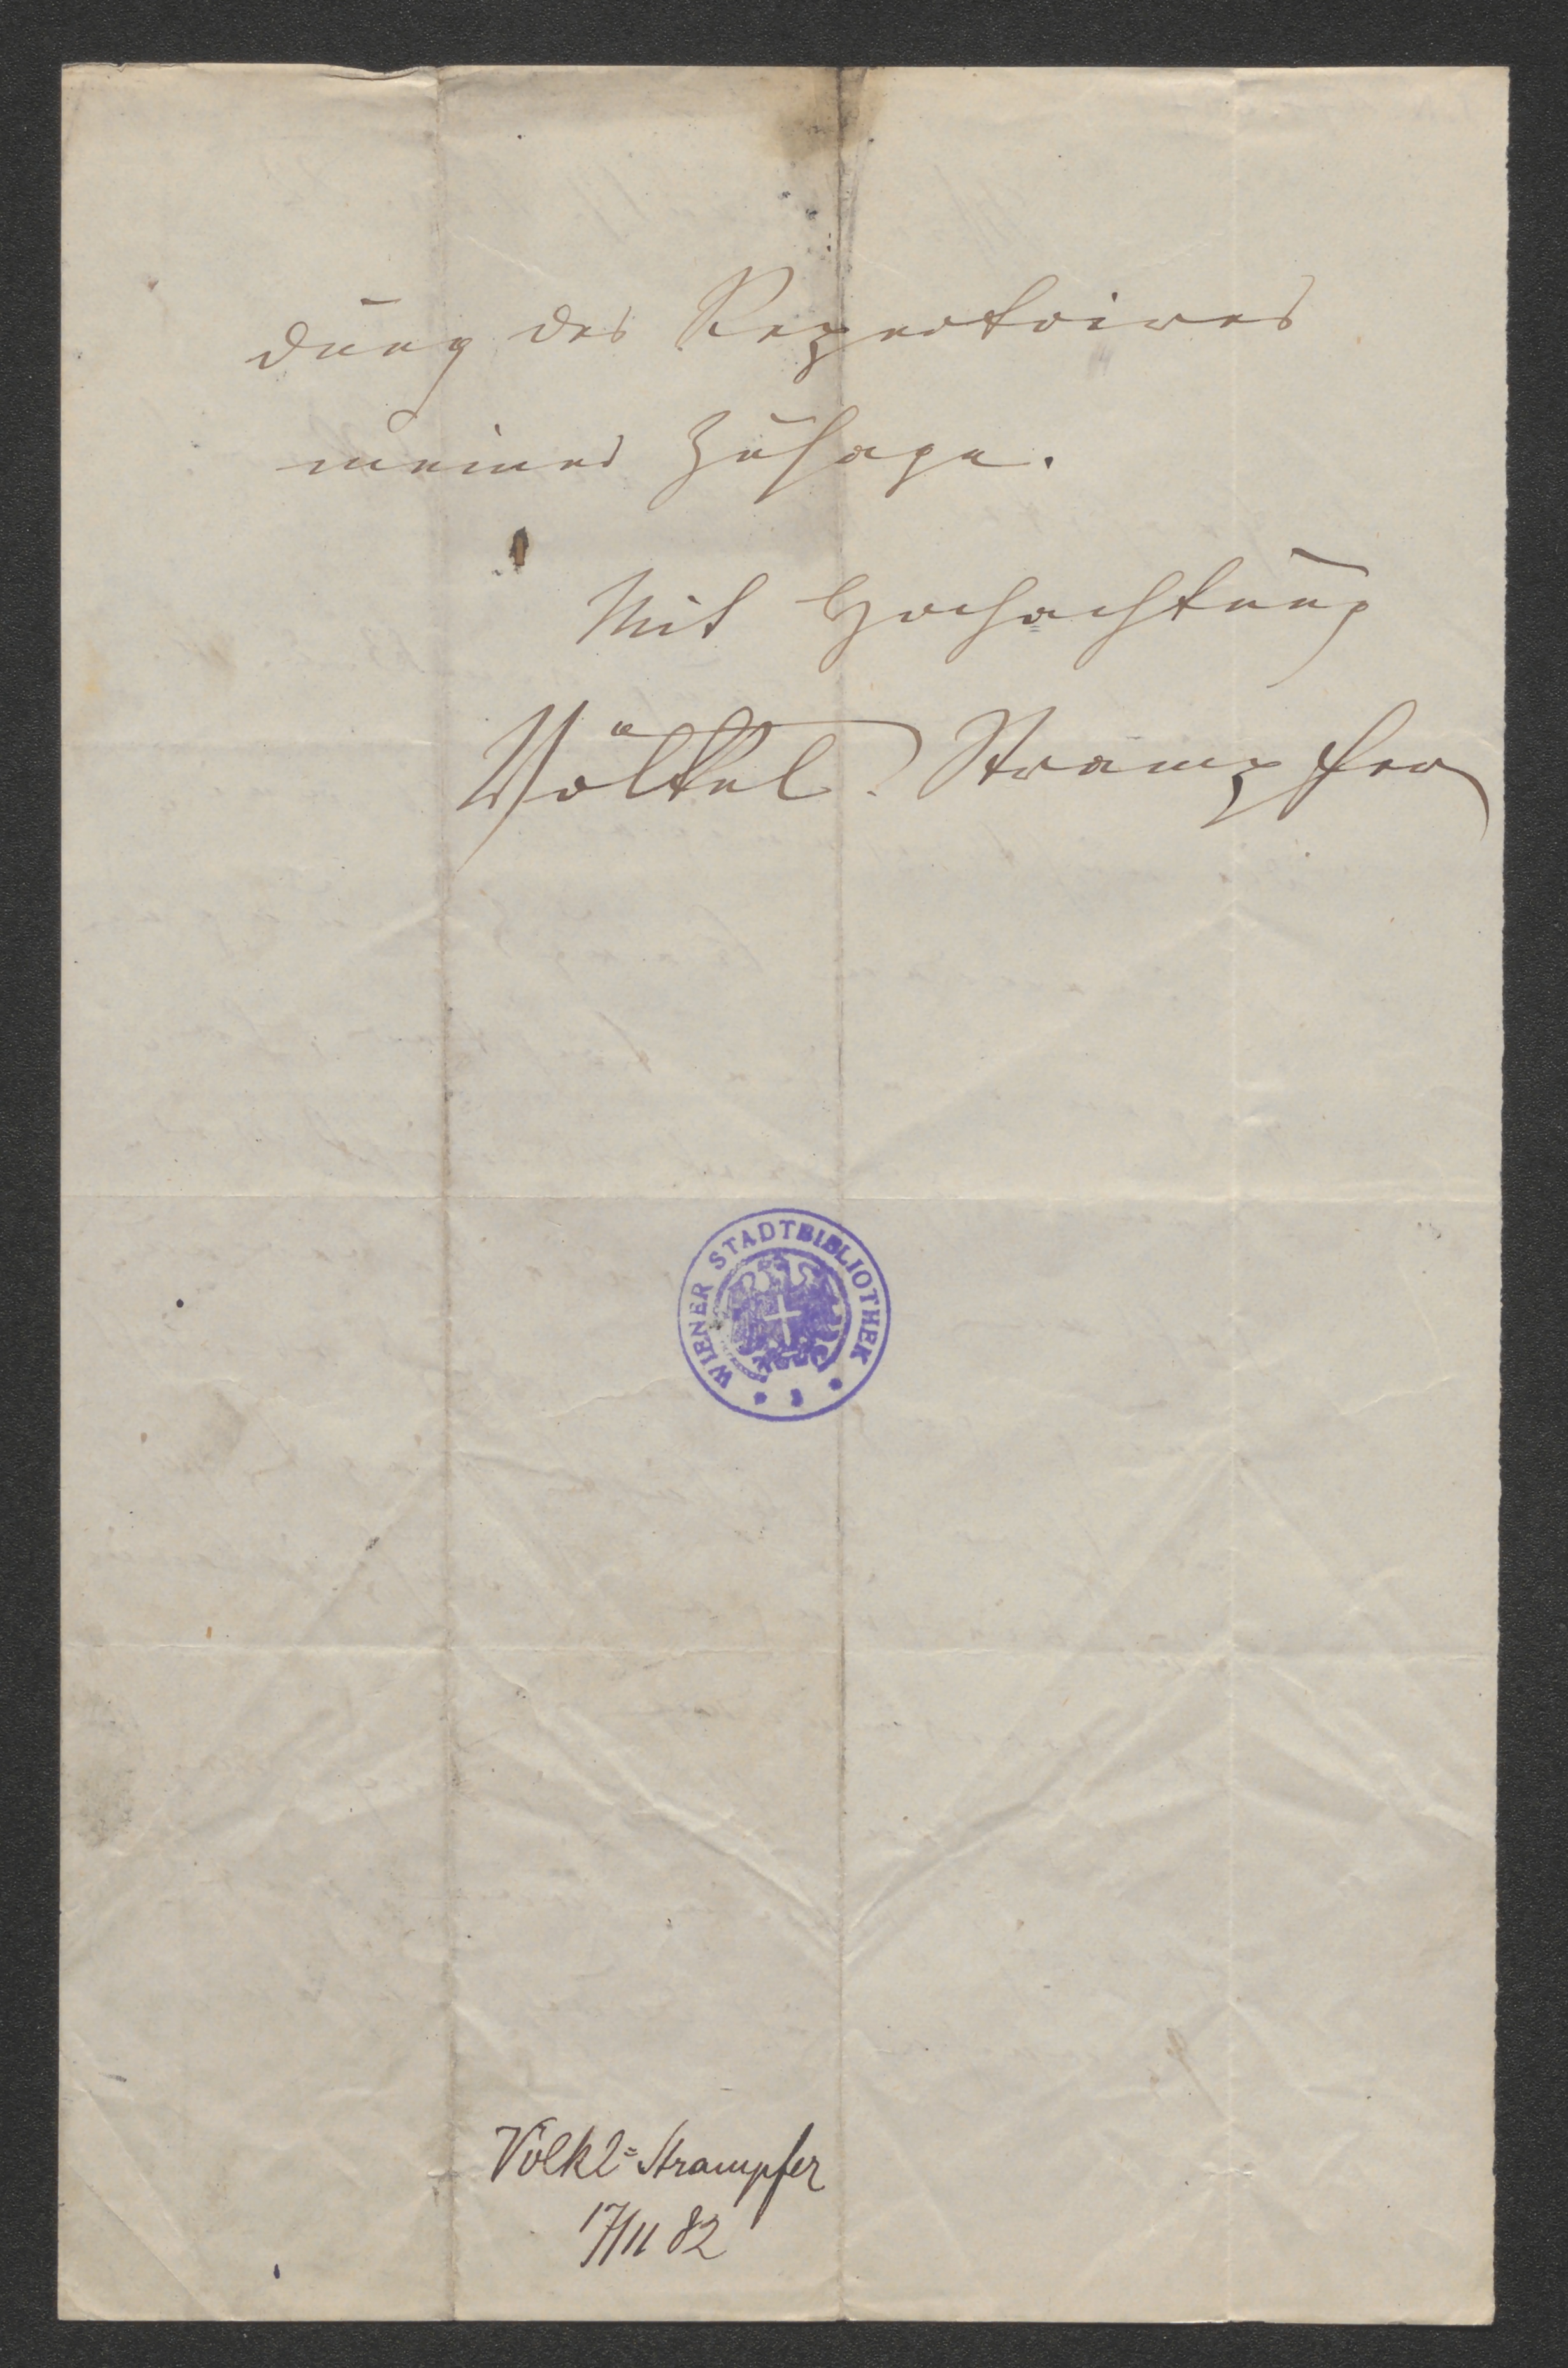 dung des Repertoires
meiner Zusage.
Mit Hochachtung
Völkel. Strampfer
WIENER STADTBIBLIOTHEK
Völkl=Strampfer
17/11 82